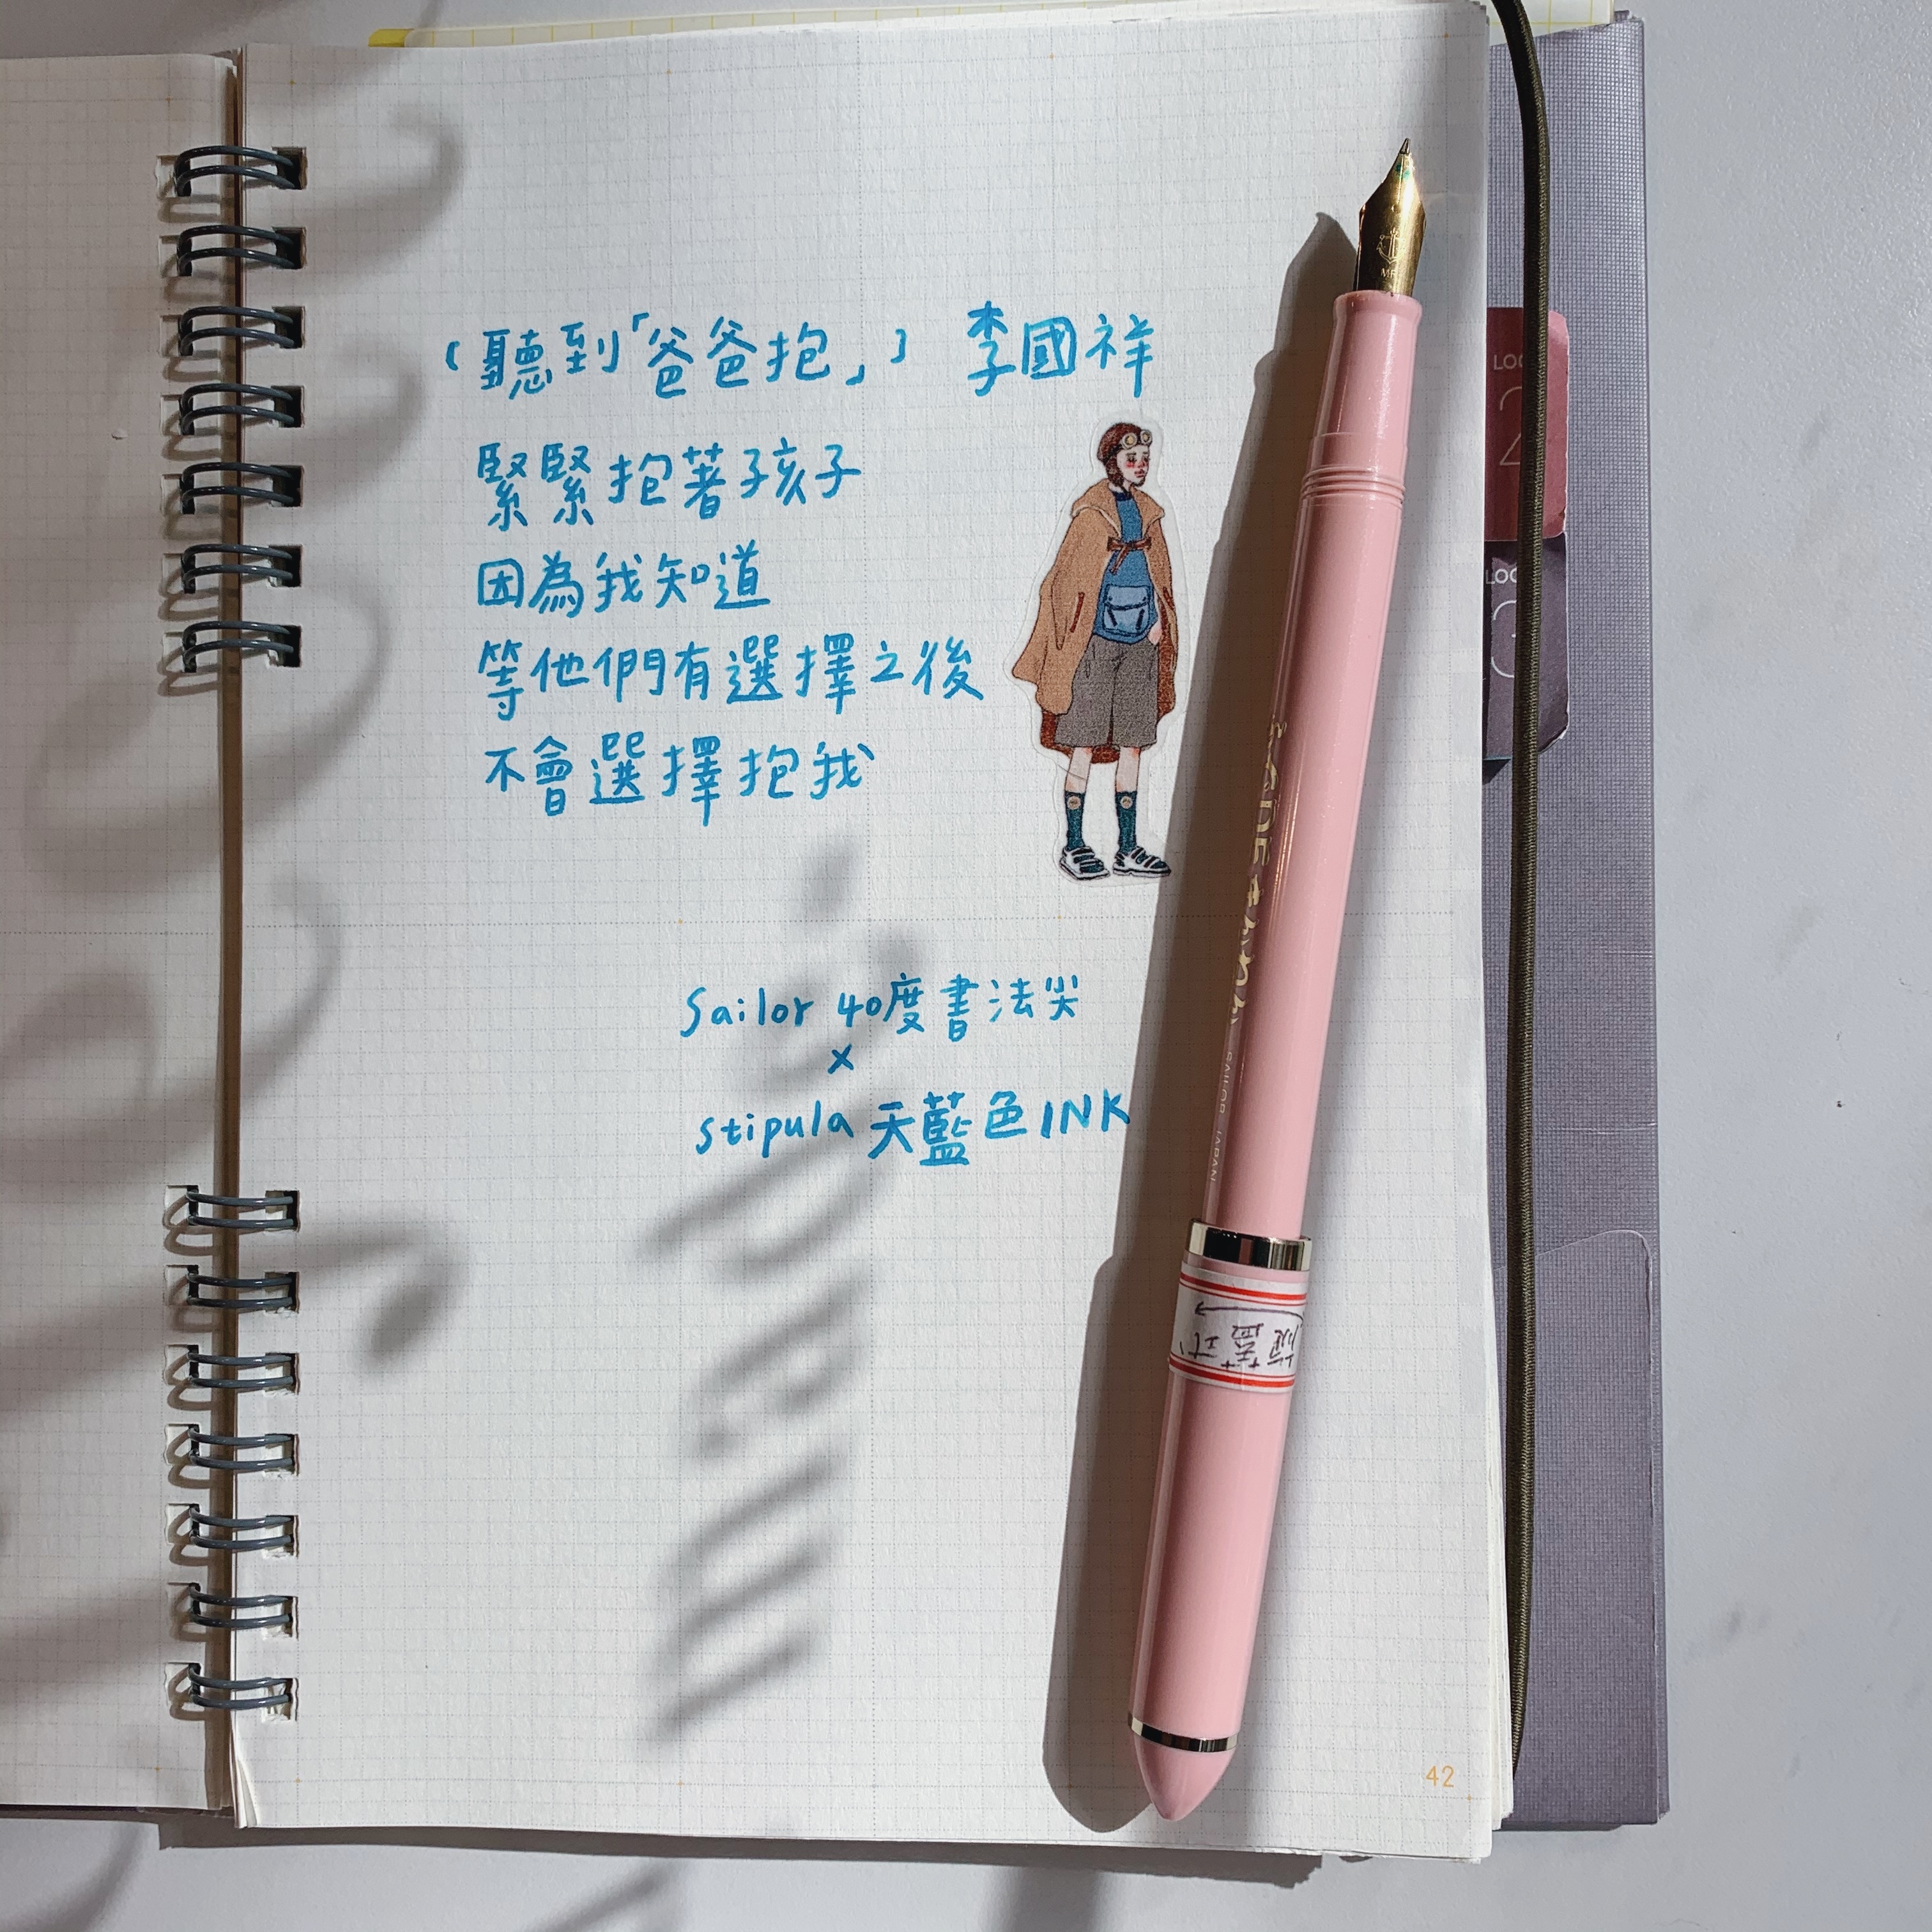 〔聽到「爸爸抱」〕 李國祥
緊緊抱著孩子
因為我知道
等他們有選擇之後
不會選擇抱我
Sailor 40度書法尖
x
stipula 天藍色INK
SAILOR JAPAN
MF
2
42